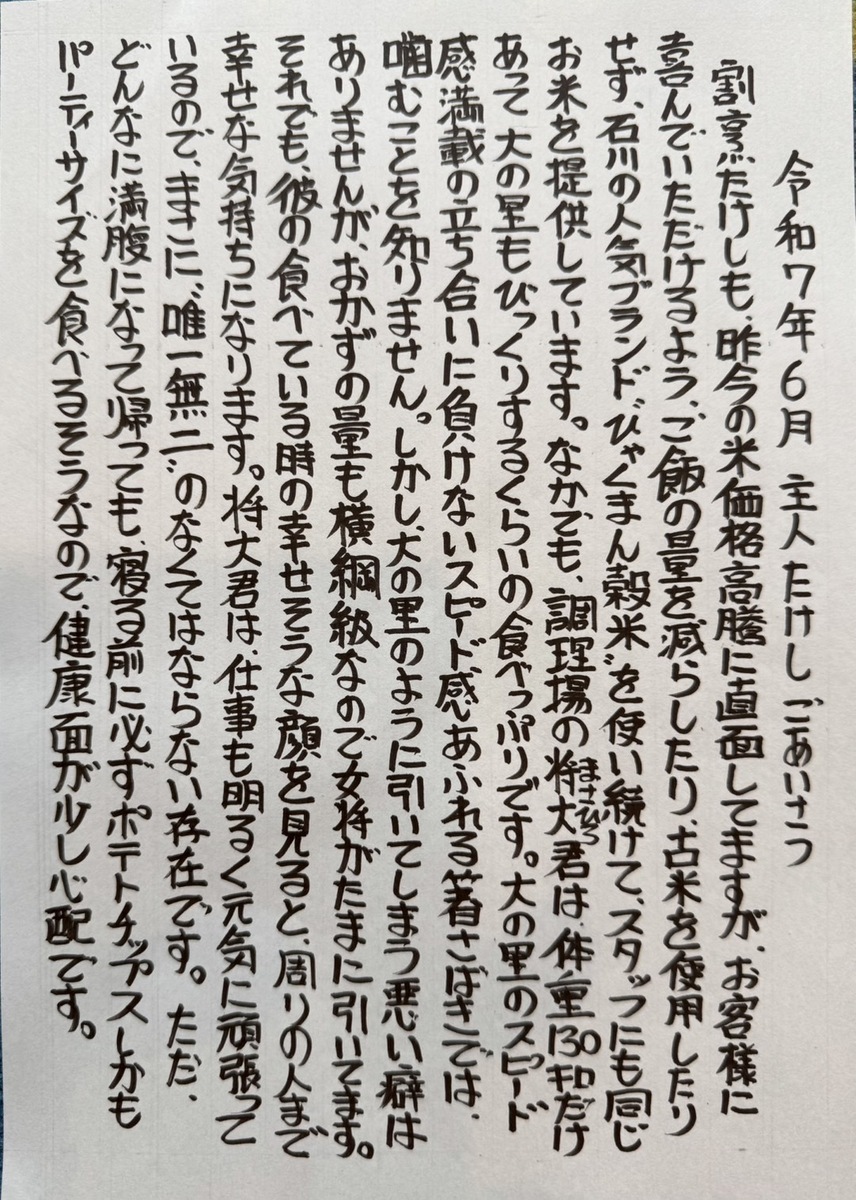 令和7年6月 主人たけし ごあいさつ
割烹たけしも、昨今の米価格高騰に直面してますが、お客様に
喜んでいただけるよう、ご飯の量を減らしたり、古米を使用したり
せず、石川の人気ブランド〝ひゃくまん穀米〟を使い続けて、スタッフにも同じ
お米を提供しています。なかでも、調理場の将大君は、体重130キロだけ
まさひろ
あって大の里もびっくりするくらいの食べっぷりです。大の里のスピード
感満載の立ち合いに負けないスピード感あふれる箸さばきでは、
噛むことを知りません。しかし、大の里のように引いてしまう悪い癖は
ありませんが、おかずの量も横綱級なので女将がたまに引いてます。
それでも、彼の食べている時の幸せそうな顔を見ると、周りの人まで
幸せな気持ちになります。将大君は、仕事も明るく元気に頑張って
いるので、まさに、〝唯一無二〟のなくてはならない存在です。ただ、
どんなに満腹になって帰っても、寝る前に必ずポテトチップスしかも
パーティーサイズを食べるそうなので、健康面が少し心配です。